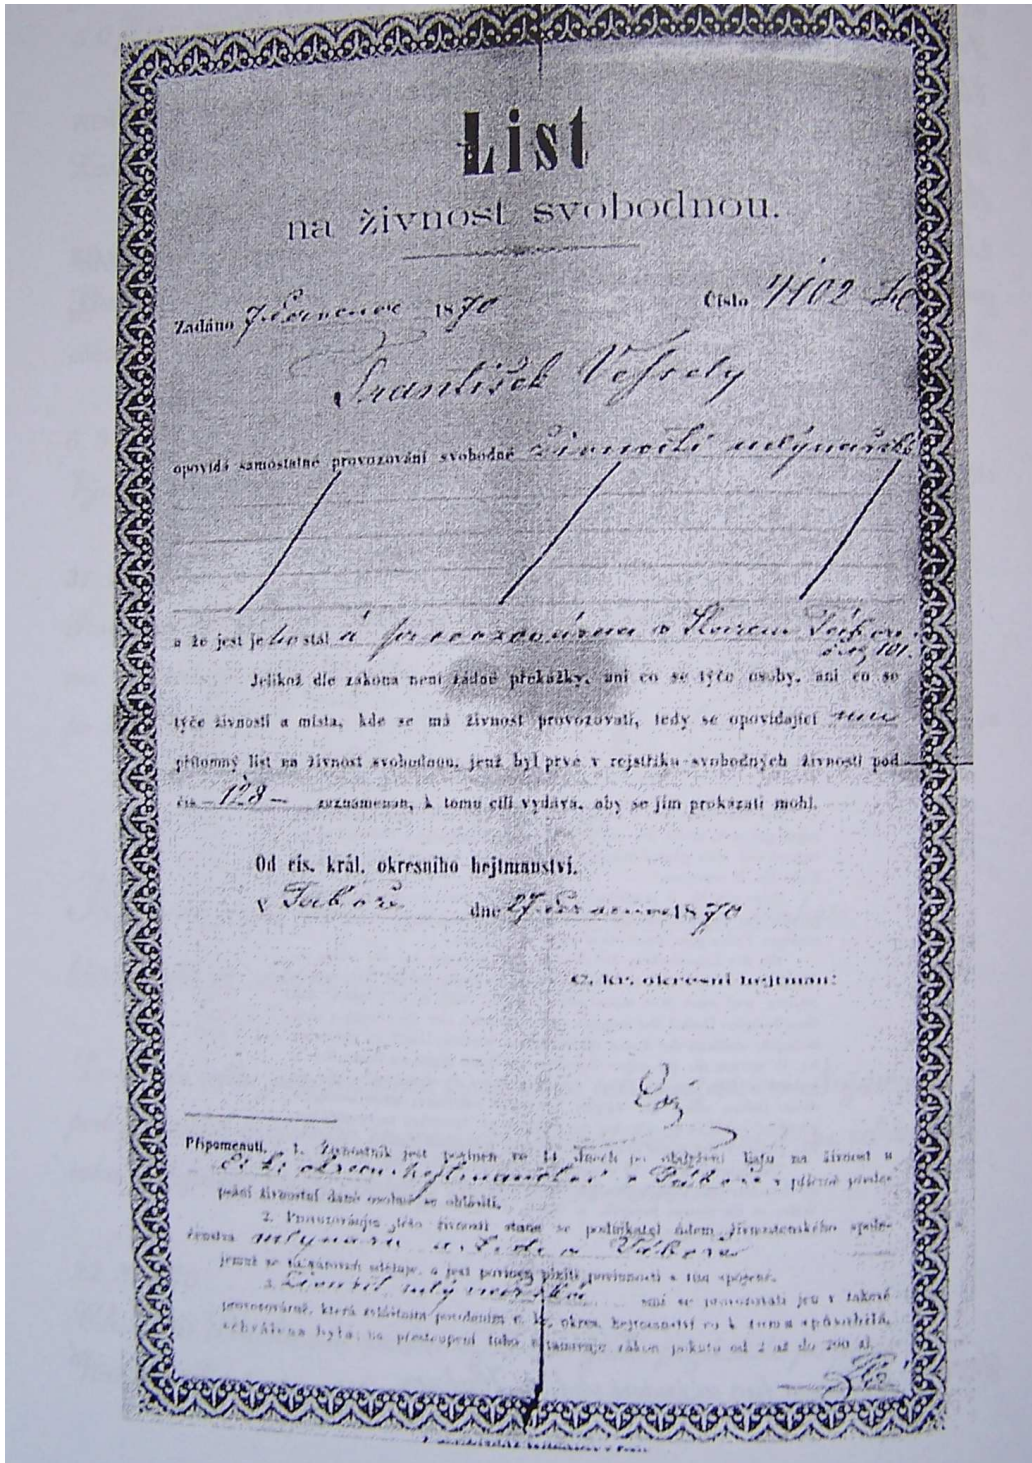 List
na živnost svobodnou.
Zadáno 7. Července 1870 Číslo 4102
František Vessely
opovídá samostatné provozování svobodné živnosti mlynářské
a že jest jeho stálá provozovárna v Starém Táboře
čís. 101.
Jelikož dle zákona není žádné překážky, ani co se týče osoby, ani co se
týče živnosti a místa, kde se má živnost provozovati, tedy se opovídající mu
přítomný list na živnost svobodnou, jenž byl prvé v rejstříku svobodných živností pod
čís. – 128 – zaznamenán, k tomu cíli vydává, aby se jím prokázati mohl.
Od cís. král. okresního hejtmanství.
v Táboře dne 27. července 1870
C. kr. okresní hejtman:
Připomenutí. 1. Živnostník jest povinen ve 14 dnech po obdržení listu na živnost u
c. k. okres. hejtmanství v Táboře v příčině
psání živnostní daně osobně se ohlásiti.
2. Provozováním této živnosti stane se podnikatel údem živnostenského spole-
čenstva mlynářů v Táboře
jemuž se a jest povinen plniti povinnosti s tím spojené.
3. Živnost mlynářská smí se provozovati jen v takové
provozovárně, která zvláštním povolením c. kr. okres. hejtmanství co k tomu způsobilá
schválena byla; na přestoupení toho ustanovuje zákon pokutu od 2 až do 200 zl.